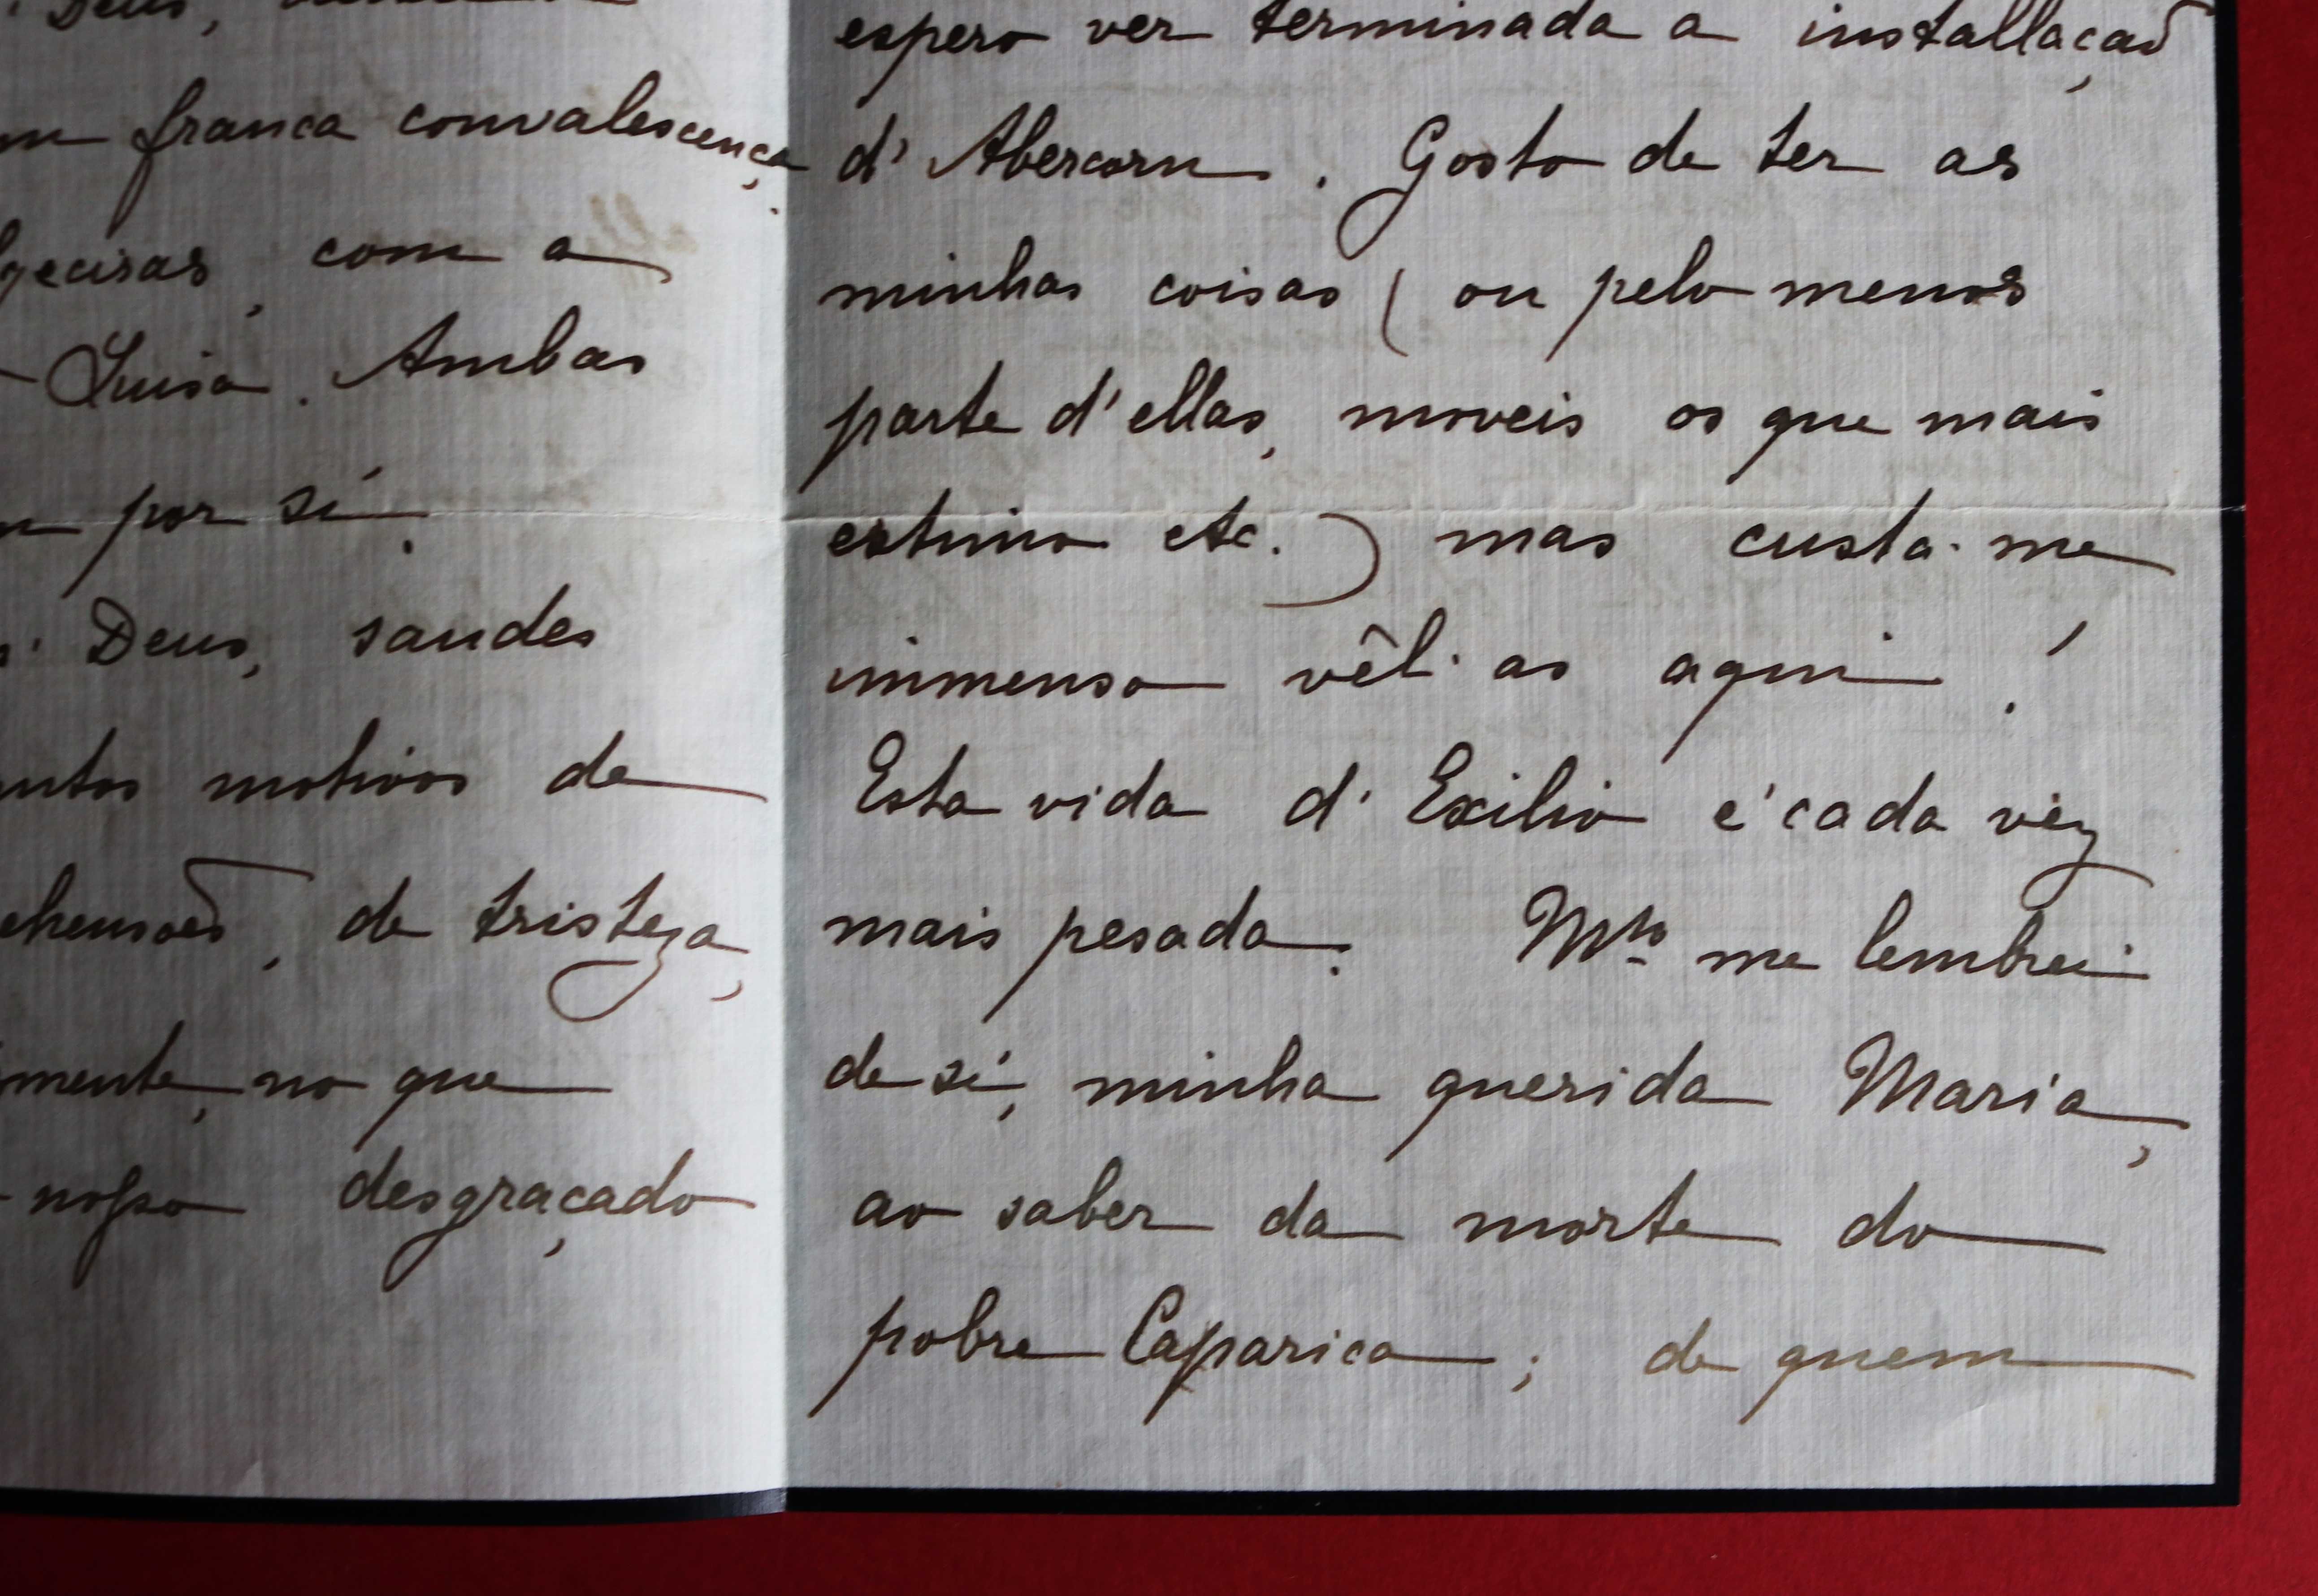 Deus,
franca convalescença.
com a
Luisa. Ambas
por si.
Deus, saudes
motivos de
de tristeza,
mente, no que
nosso desgraçado
espero ver terminada a installação
d'Abercorn. Gosto de ter as
minhas coisas (ou pelo menos
parte d'ellas, moveis os que mais
estimo etc.) mas custa-me
immenso vêl-as aqui!
Esta vida d'Exilio é cada vez
mais pesada. Mto me lembrei
de si, minha querida Maria,
ao saber da morte do
pobre Caparica; de quem